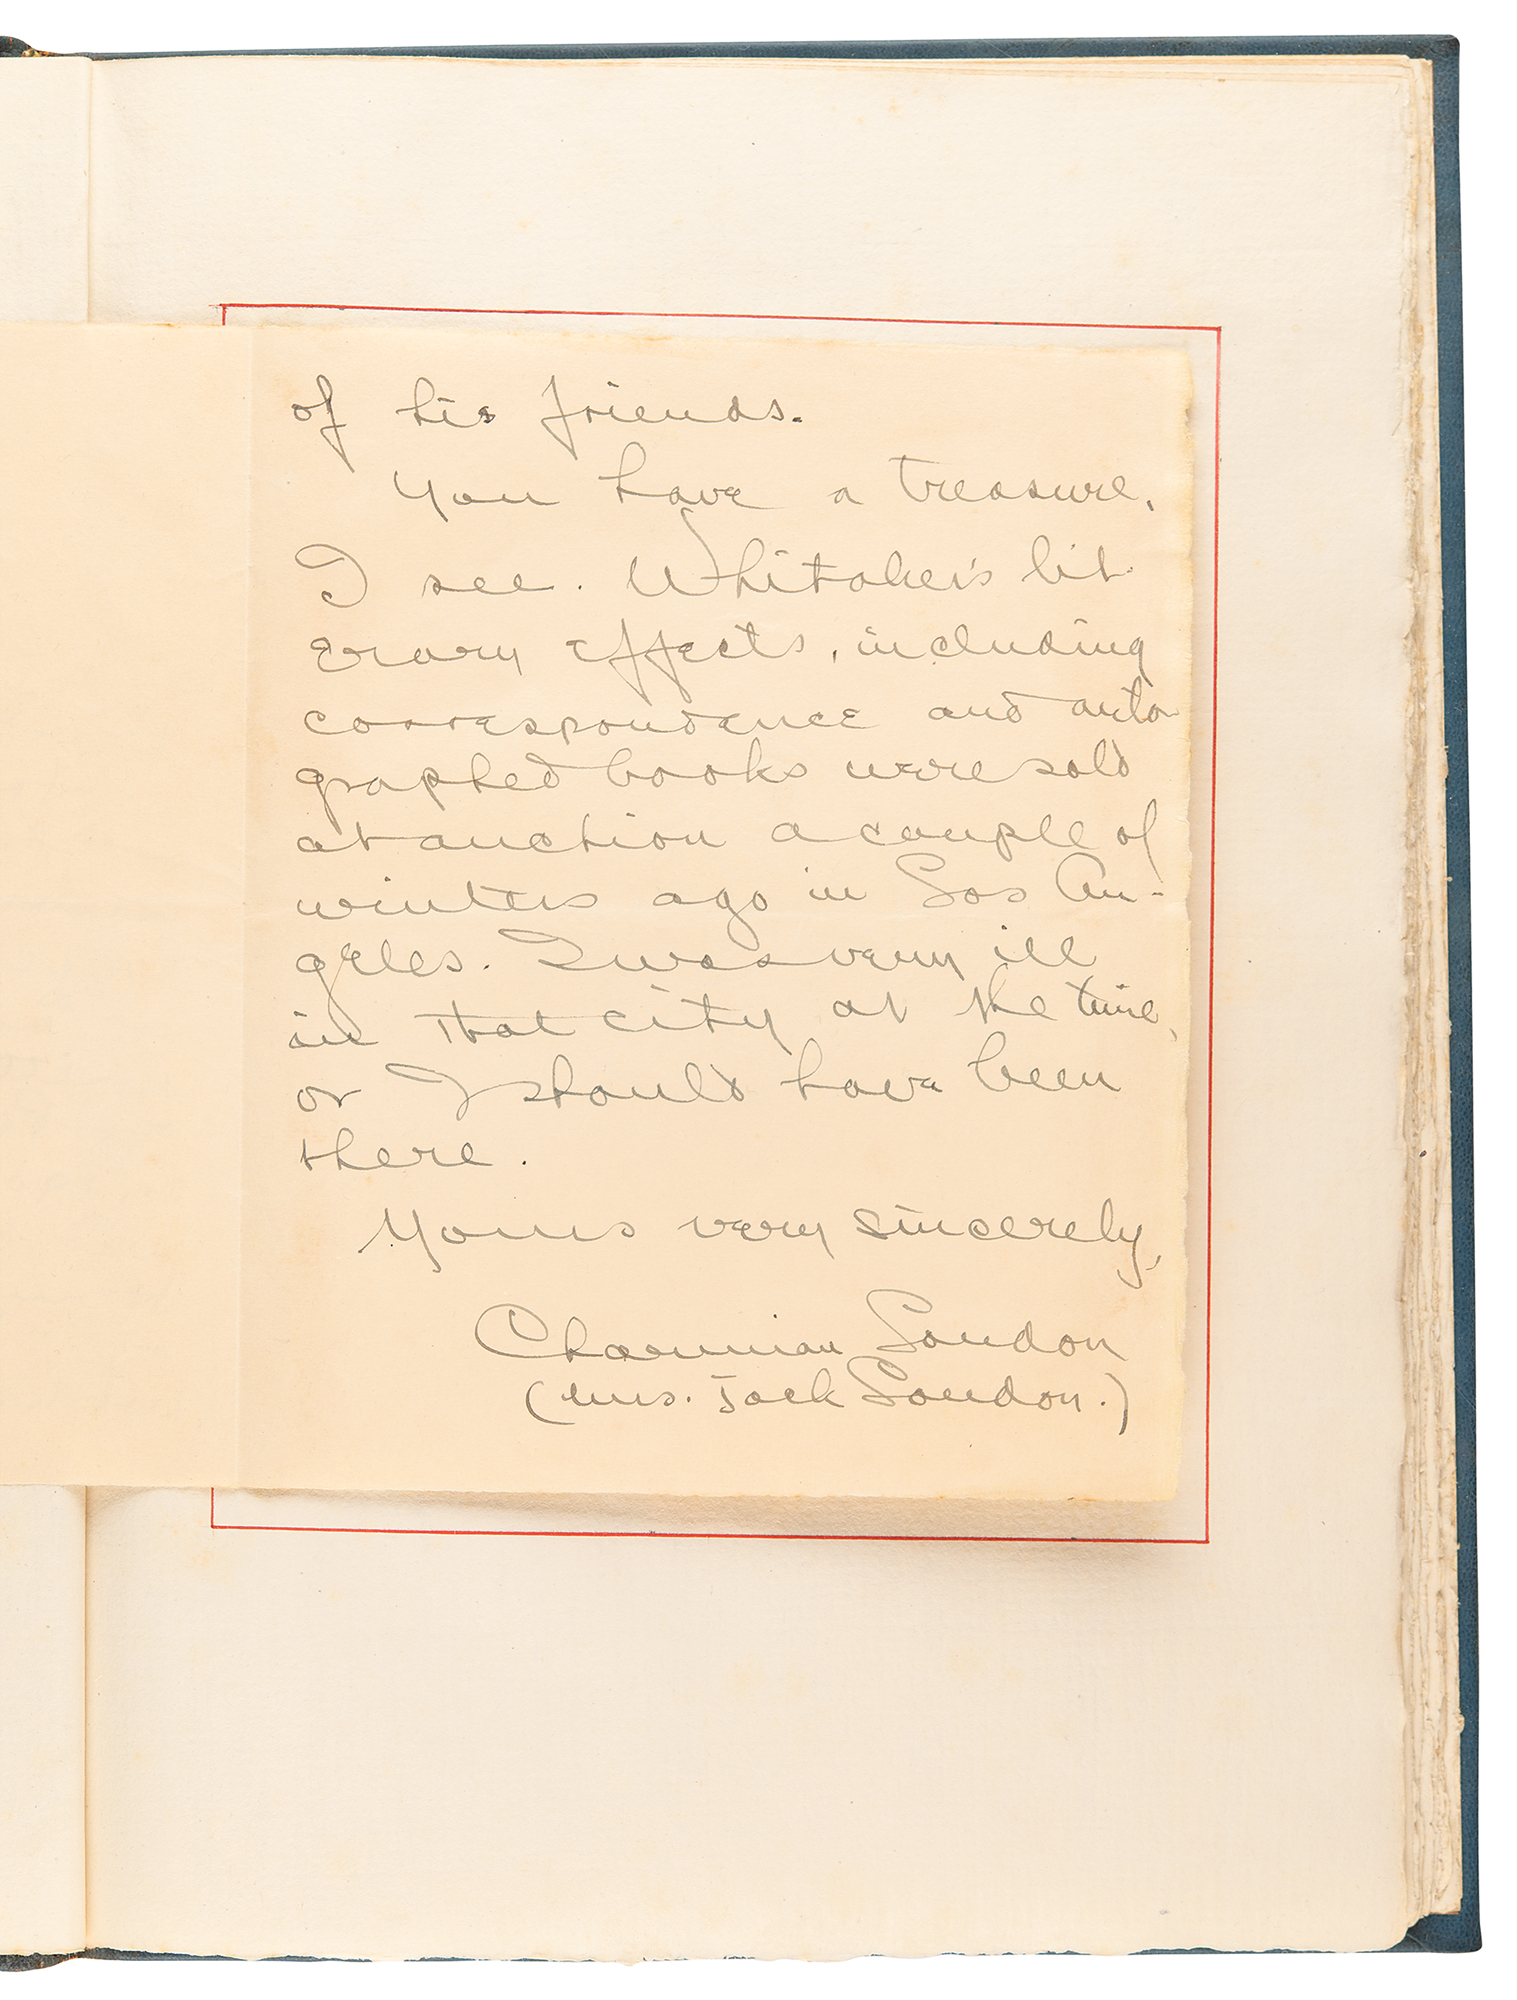 of his friends.
You have a treasure,
I see. Whitaker's lit
erary effects, including
correspondence and auto
graphed books were sold
at auction a couple of
winters ago in Los An-
geles. I was very ill
in that city at the time,
or I should have been
there.
Yours very sincerely,
Charmian London
(Mrs. Jack London.)